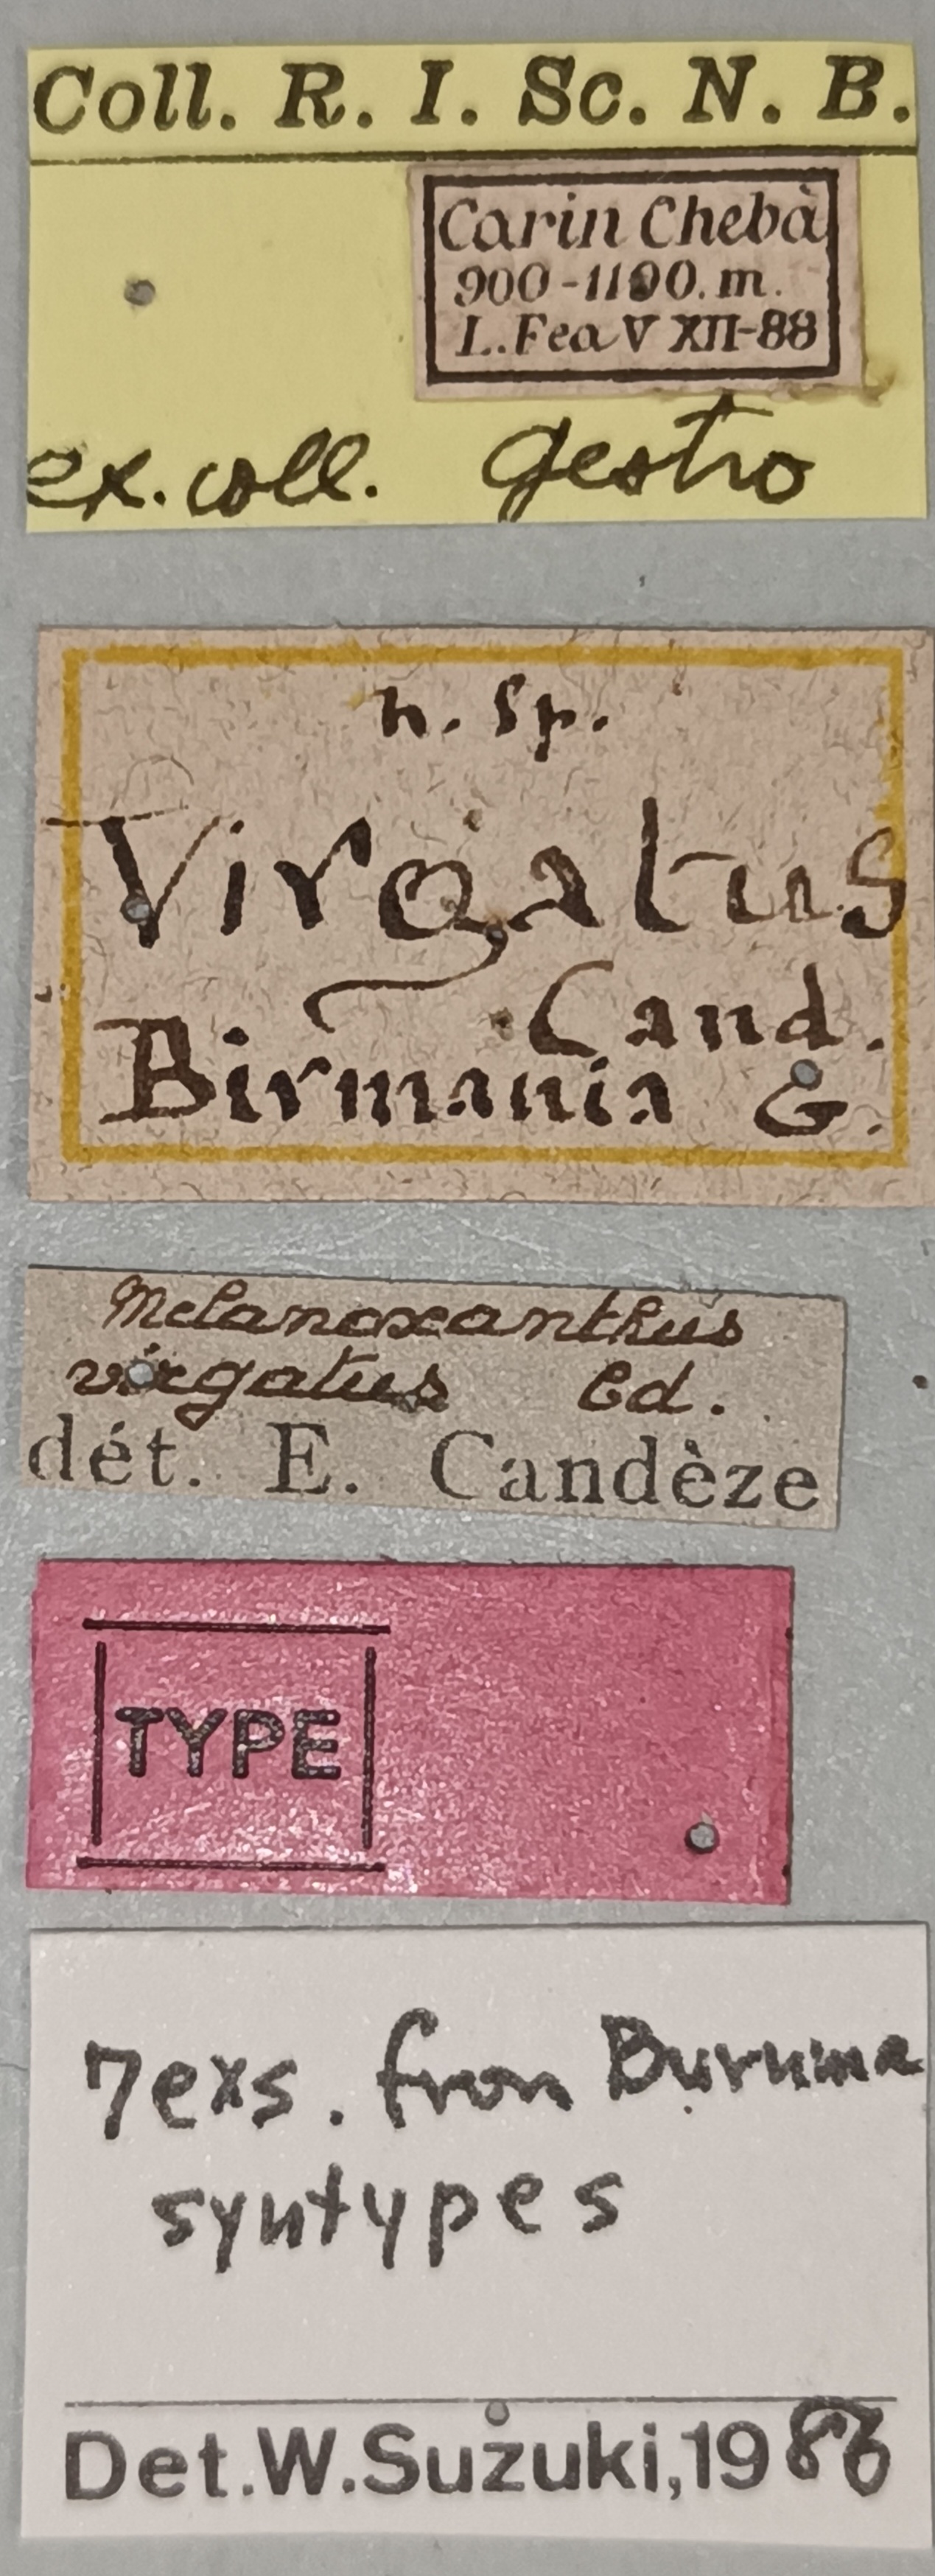 Coll. R. I. Sc. N. B.
Carin Chebà
900-1100. m.
L. Fea V XII-88
ex. coll. Gestro
n. sp.
Virgatus
Cand.
Birmania G.
Melanoxanthus
virgatus Cd.
dét. E. Candèze
TYPE
7exs. from Buruma
syntypes
Det.W.Suzuki,1986